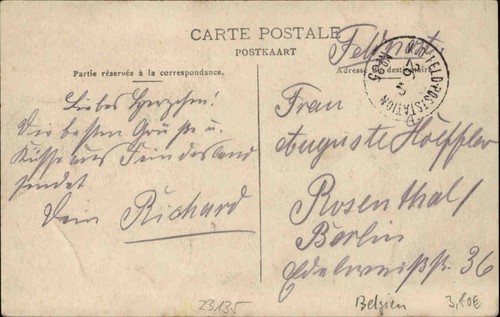 CARTE POSTALE
POSTKAART
Feldpost.
Partie réservée à la correspondance.
Adresse du destinataire.
FELD-POSTSTATION
Liebes Herzchen!
Die besten Grüße u.
Küsse aus Feindesland
sendet
Dein Richard
Frau
Auguste Hoeffler
Rosenthal/
Berlin
Edelweißstr. 36
23135
Belgien